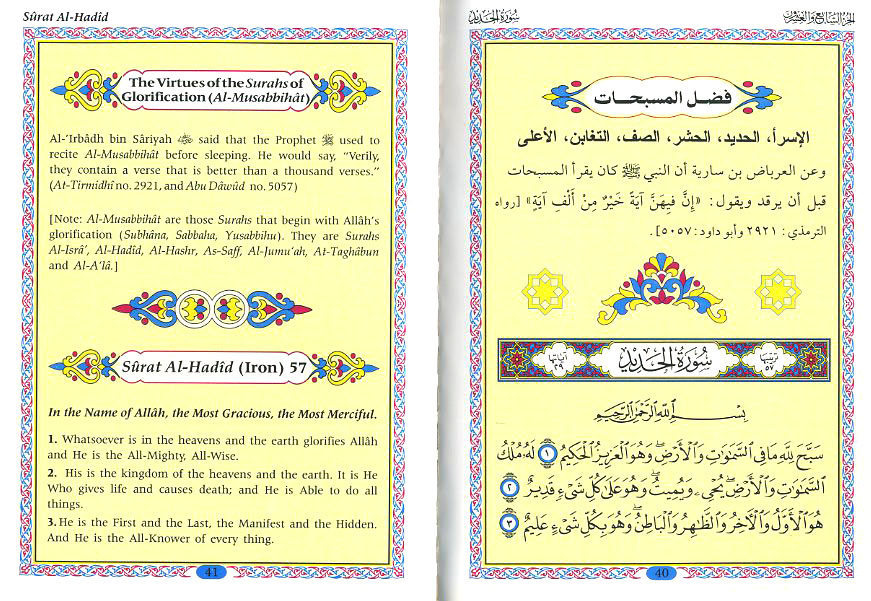 Sûrat Al-Hadîd
The Virtues of the Surahs of
Glorification (Al-Musabbihât)
Al-'Irbâdh bin Sâriyah ﷺ said that the Prophet ﷺ used to
recite Al-Musabbihât before sleeping. He would say, "Verily,
they contain a verse that is better than a thousand verses."
(At-Tirmidhî no. 2921, and Abu Dâwûd no. 5057)
[Note: Al-Musabbihât are those Surahs that begin with Allâh's
glorification (Subhâna, Sabbaha, Yusabbihu). They are Surahs
Al-Isrâ', Al-Hadîd, Al-Hashr, As-Saff, Al-Jumu'ah, At-Taghâbun
and Al-A'lâ.]
Sûrat Al-Hadîd (Iron) 57
In the Name of Allâh, the Most Gracious, the Most Merciful.
1. Whatsoever is in the heavens and the earth glorifies Allâh
and He is the All-Mighty, All-Wise.
2. His is the kingdom of the heavens and the earth. It is He
Who gives life and causes death; and He is Able to do all
things.
3. He is the First and the Last, the Manifest and the Hidden.
And He is the All-Knower of every thing.
41
الجزء السابع والعشرون سورة الحديد
فضل المسبحات
الإسرأ، الحديد، الحشر، الصف، التغابن، الأعلى
وعن العرباض بن سارية أن النبي ﷺ كان يقرأ المسبحات
قبل أن يرقد ويقول: «إِنَّ فِيهِنَّ آيَةً خَيْرٌ مِنْ أَلْفِ آيَةٍ» [رواه
الترمذي: ٢٩٢١ وأبو داود: ٥٠٥٧].
ترتيبها ٥٧ سُورَةُ الحَدِيدِ آياتها ٢٩
بِسْمِ ٱللَّهِ ٱلرَّحْمَٰنِ ٱلرَّحِيمِ
سَبَّحَ لِلَّهِ مَا فِى ٱلسَّمَٰوَٰتِ وَٱلْأَرْضِ ۖ وَهُوَ ٱلْعَزِيزُ ٱلْحَكِيمُ ١ لَهُۥ مُلْكُ
ٱلسَّمَٰوَٰتِ وَٱلْأَرْضِ ۖ يُحْىِۦ وَيُمِيتُ ۖ وَهُوَ عَلَىٰ كُلِّ شَىْءٍ قَدِيرٌ ٢
هُوَ ٱلْأَوَّلُ وَٱلْـَٔاخِرُ وَٱلظَّٰهِرُ وَٱلْبَاطِنُ ۖ وَهُوَ بِكُلِّ شَىْءٍ عَلِيمٌ ٣
40